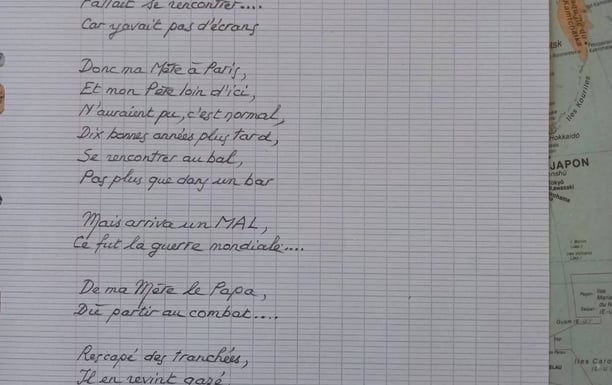 Fallait se rencontrer....
Car yavait pas d'écrans
Donc ma Mère à Paris,
Et mon Père loin d'ici,
N'auraient pu, c'est normal,
Dix bonnes années plus tard,
Se rencontrer au bal,
Pas plus que dans un bar
Mais arriva un MAL,
Ce fut la guerre mondiale....
De ma Mère le Papa,
Dû partir au combat....
Rescapé des tranchées,
Il en revint gazé
Kamtchatka
Iles Kouriles
Hokkaido
JAPON
Tōkyō
Kawasaki
Guam
Iles